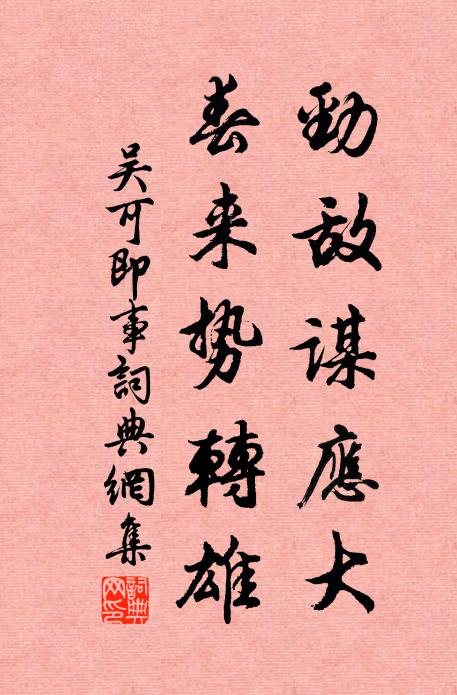 劲敌谋應大
春来势轉雄
吴可即事詞典網集
詞典网印